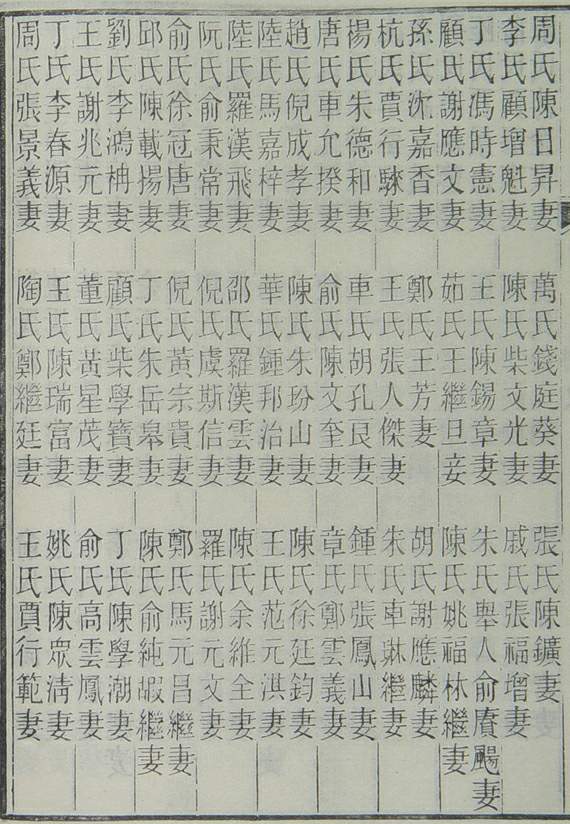 周氏陳日昇妻 萬氏錢庭葵妻 張氏陳鑛妻
李氏顧增魁妻 陳氏柴文光妻 戚氏張福增妻
丁氏馮時憲妻 王氏陳錫章妻 朱氏舉人俞賡颺妻
顧氏謝應文妻 茹氏王繼旦妾 陳氏姚福林繼妻
孫氏沈嘉香妻 鄭氏王芳妻 胡氏謝應麟妻
杭氏賈行騋妻 王氏張人傑妻 朱氏車琳繼妻
楊氏朱德和妻 車氏胡孔艮妻 鍾氏張鳳山妻
唐氏車允揆妻 俞氏陳文奎妻 章氏鄭雲義妻
趙氏倪成孝妻 陳氏朱玢山妻 陳氏徐廷鈞妻
陸氏馬嘉梓妻 華氏鍾邦治妻 王氏范元淇妻
陸氏羅漢飛妻 邵氏羅漢雲妻 陳氏余維全妻
阮氏俞秉常妻 倪氏虞斯信妻 羅氏謝元文妻
俞氏徐冠唐妻 倪氏黃宗貴妻 鄭氏馬元昌繼妻
邱氏陳載揚妻 丁氏朱岳皋妻 陳氏俞純嘏繼妻
劉氏李鴻柟妻 顧氏柴學寶妻 丁氏陳學潮妻
王氏謝兆元妻 董氏黃星茂妻 俞氏高雲鳳妻
丁氏李春源妻 王氏陳瑞富妻 姚氏陳眾清妻
周氏張景義妻 陶氏鄭繼廷妻 王氏賈行範妻